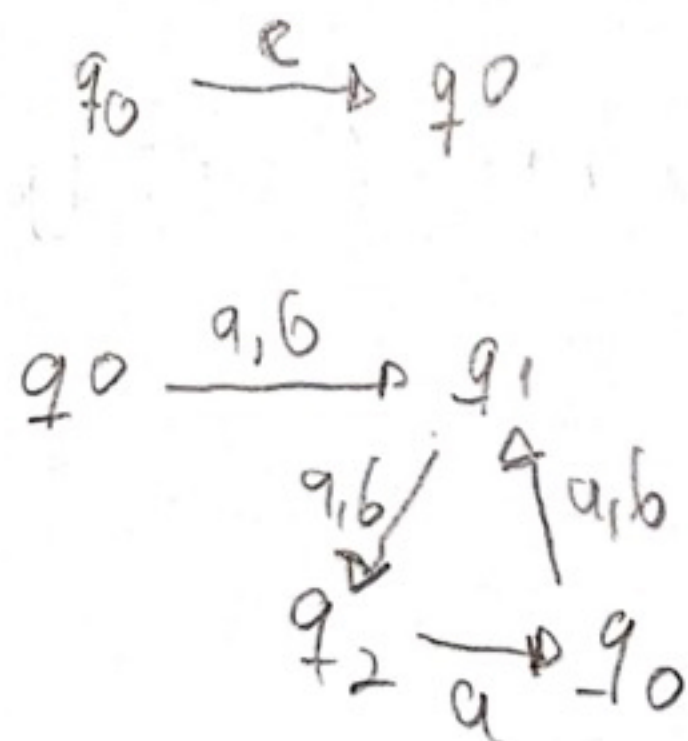 q0 e q0
q0 a,b q1
a,b a,b
q2 a q0